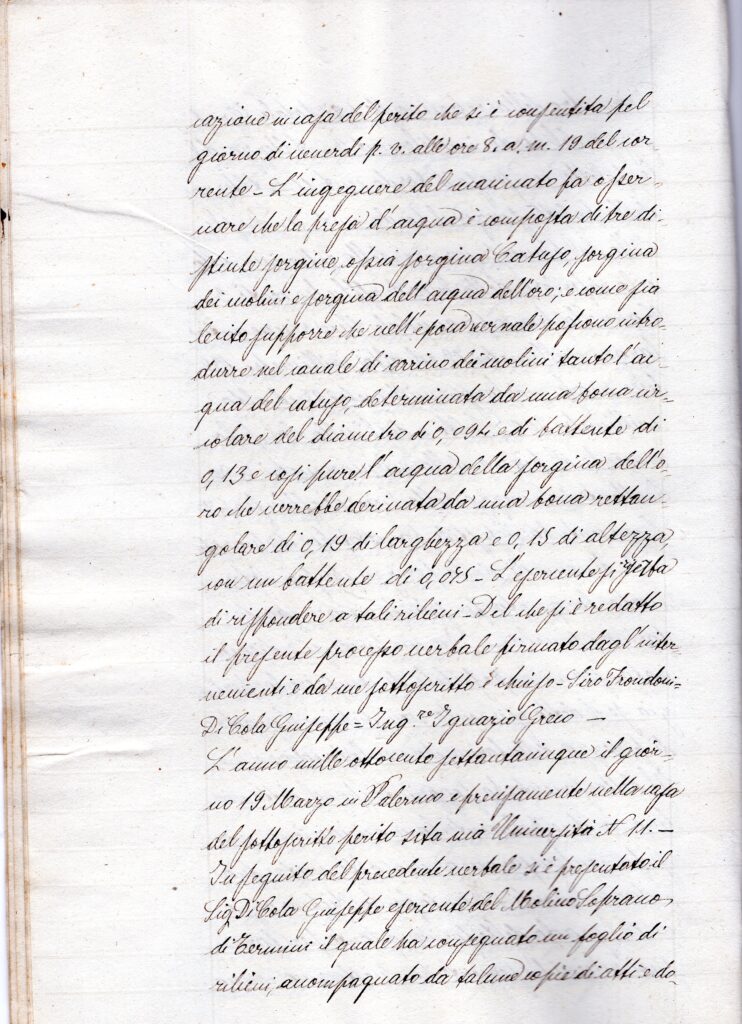 cazione in casa del perito che si è consentita pel
giorno di venerdì p. v. alle ore 8. a. m. 19 del cor-
rente - L'ingegnere del macinato fa osser-
vare che la presa d'acqua è composta di tre di-
stinte sorgine, ossia sorgina Catuso, sorgina
dei molini e sorgina dell'acqua dell'oro; e come sia
lecito supporre che nell'epoca vernale possono intro-
durre nel canale di carrino dei molini tanto l'ac-
qua del catuso, determinata da una bocca cir-
colare del diametro di 0,094 e di battente di
0,13 e così pure l'acqua della sorgina dell'o-
ro che verrebbe derivata da una bocca rettan-
golare di 0,19 di larghezza e 0,15 di altezza,
con un battente di 0,075 - L'esercente si
di rispondere a tali rilievi - Del che si è redatto
il presente processo verbale firmato dagl'inter
venienti e da me sottoscritto è chiuso - Siro Trondoni -
Di Cola Guiseppe = Ing.re Ignazio Greco -
L'anno mille ottocento settantacinque il gior-
no 19 Marzo in Palermo e precisamente nella casa
del sottoscritto perito sita via Università N 11. -
In seguito del precedente verbale si è presentato il
Sig. Di Cola Guiseppe esercente del Molino Soprano
di Termini il quale ha consegnato un foglio di
rilievi, accompagnato da talune copie di atti e do-